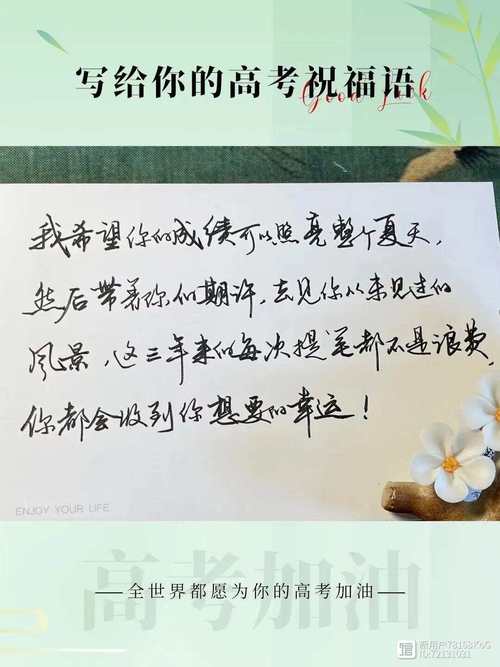 写给你的高考祝福语
Good Luck
我希望你的成绩可以照亮整个夏天,
然后带着你的期许,去见你从未见过的
风景,这三年来的每次提笔都不是浪费,
你都会收到你想要的幸运!
ENJOY YOUR LIFE
高考加油
—全世界都愿为你的高考加油—
新用户78168KoG